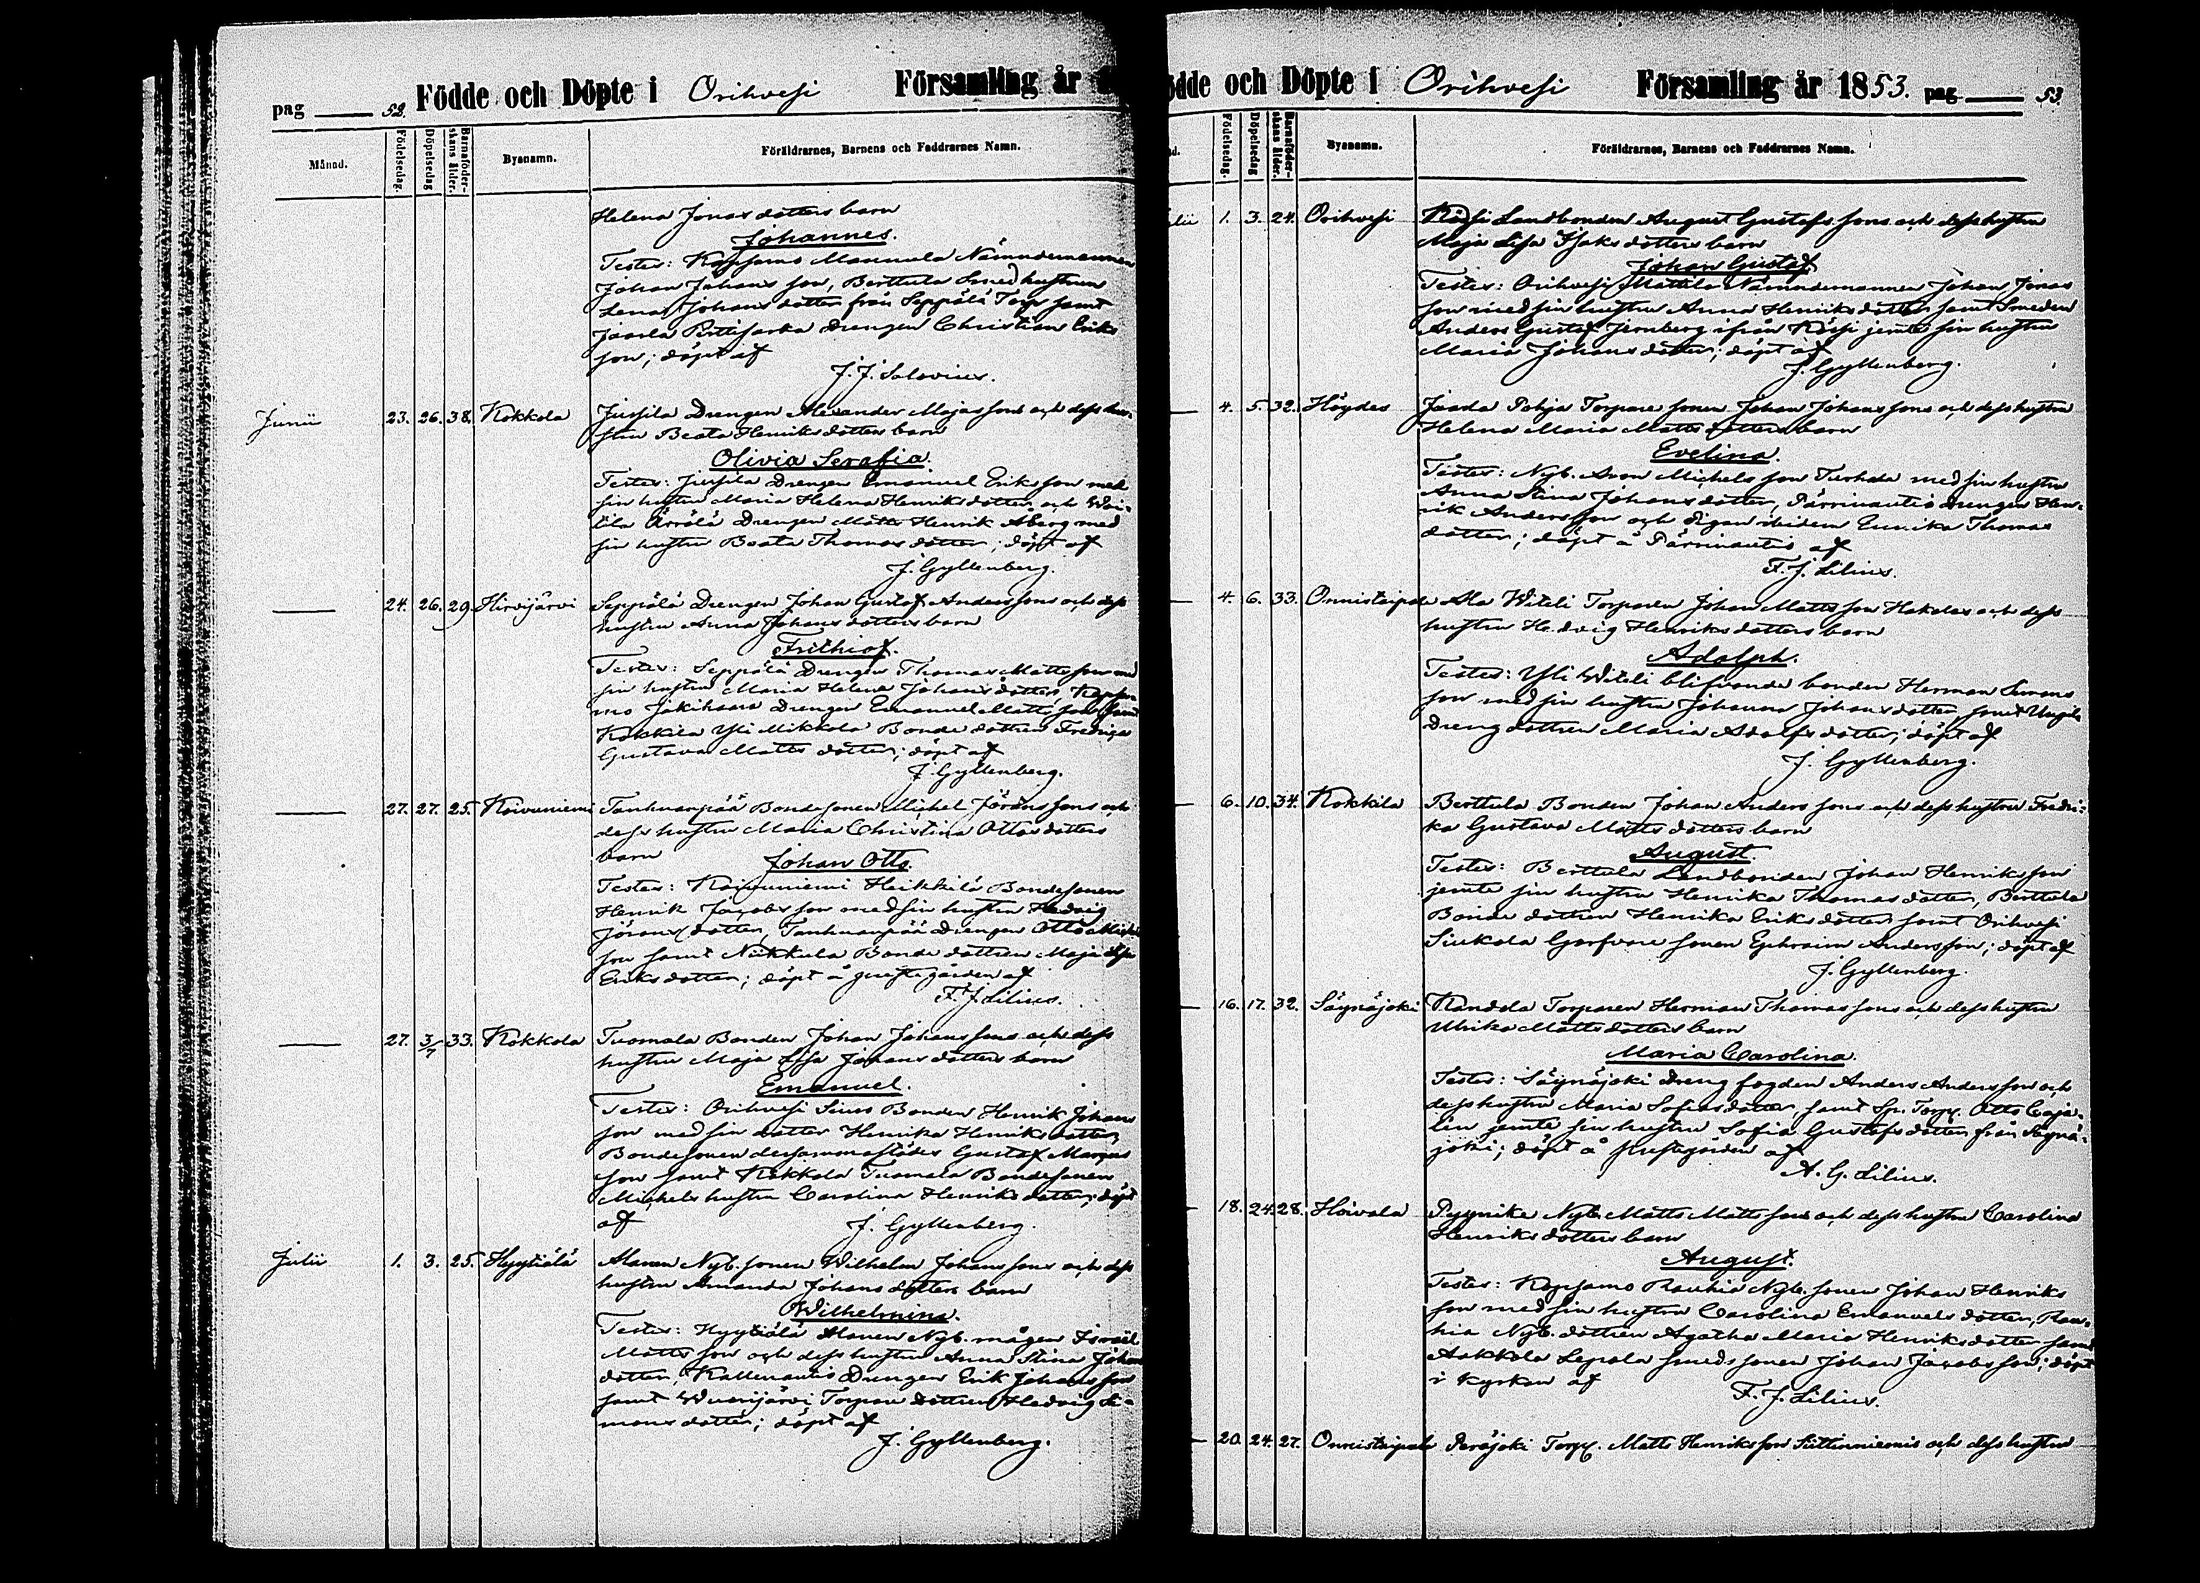 pag 52. Födde och Döpte i Orihvesi Församling år
Månad. Födelsedag. Döpelsedag Barnaföderskans ålder. Bysnamn. Föräldrarnes, Barnens och Faddrarnes Namn.
Helena Jonas dotters barn
Johannes.
Testes: Kopsamo Mannula Nämndemannen
Johan Johans son, Berttula Smed hustrun
Lena Johans dotter från Seppälä Torp samt
Drengen Christian Eriks
son; döpt af
J. J. Salovius.
Junii 23. 26. 38. Kokkola Jussila Drengen Alexander Majas sons och dess hu-
stru Beata Henriks dotters barn
Olivia Serafia.
Testes: Jussila Drengen Emanuel Eriks son med
sin hustru Maria Helena Henriks dotter och Wai-
tila Ärrälä Drengen Matts Henrik Åberg med
sin hustru Beata Thomas dotter; döpt af
J. Gyllenberg.
24. 26. 29. Hirvijärvi Seppälä Drengen Johan Gustaf Anders sons och dess
hustru Anna Johans dotters barn
Frithiof.
Testes: Seppälä Drengen Thomas Matts son med
sin hustru Maria Helena Johans dotter, Kopsa-
mo Drengen Emanuel Matts son samt
Kokkila Yli Mikkola Bonde dottren Fredrika
Gustava Matts dotter; döpt af
J. Gyllenberg.
27. 27. 25. Koivuniemi Tanhuanpää Bondesonen Michel Jörans sons och
dess hustru Maria Christina Ottos dotters
barn Johan Otto.
Testes: Koivuniemi Heikkilä Bondesonen
Henrik Jacobs son med sin hustru Hedvig
Jörans dotter, Tanhuanpää Drengen Otto Michels
son samt Nikkula Bonde dottren Maja Lisa
Eriks dotter; döpt å af
F. J. Lilius.
27. 3/7 33. Kokkola Tuomala Bonden Johan Johans sons och dess
hustru Maja Lisa Johans dotters barn
Emanuel.
Testes: Orihvesi Bonden Henrik Johans
son med sin dotter Henrika Henriks dotter,
Bondesonen dersammastädes Gustaf Marcus
son samt Kokkola Tuomala Bondesonen
Michels hustru Carolina Henriks dotter; döpt
af J. Gyllenberg.
Julii 1. 3. 25. Hyytiälä Alanen Nyb. sonen Wilhelm Johans sons och dess
hustru Amanda Johans dotters barn
Wilhelmina.
Testes: Hyytiälä Alanen Nyb. mågen Israël
Matts son och dess hustru Anna Stina Johans
dotter, Kallenautio Drengen Erik Johans son
samt Wuorijärvi Torpare dottren Hedvig Si-
mons dotter; döpt af
J. Gyllenberg.
Födde och Döpte i Orihvesi Församling år 1853. pag 53.
Födelsedag. Döpelsedag Barnaföderskans ålder. Bysnamn. Föräldrarnes, Barnens och Faddrarnes Namn.
1. 3. 24. Orihvesi Landbonden August Gustafs sons och dess hustru
Maja Lisa Isaks dotters barn
Johan Gustaf.
Testes: Orihvesi Mattila Nämndemannen Johan Jonas
son med sin hustru Anna Henriks dotter samt Smeden
Anders Gustaf Jernberg ifrån jemte sin hustru
Maria Johans dotter; döpt af
J. Gyllenberg.
4. 5. 32. Höydes Torpare sonen Johan Johans sons och dess hustru
Helena Maria Matts dotters barn
Evelina.
Testes: Nyb. Aron Michels son med sin hustru
Anna Stina Johans dotter, Pärrinautio drengen Hen-
rik Anders son och Pigan ibidem Eunika Thomas
dotter; döpt å Pärrinautio af
F. J. Lilius.
4. 6. 33. Onnistaipale Ala Witeli Torparen Johan Matts son Hakolas och dess
hustru Hedvig Henriks dotters barn
Adolph.
Testes: Yli Witeli blifvande bonden Herman Simons
son med sin hustru Johanna Johans dotter, samt
Dreng dottren Maria Adolfs dotter; döpt af
J. Gyllenberg.
6. 10. 34. Kokkila Berttula Bonden Johan Anders sons och dess hustru Fredri-
ka Gustava Matts dotters barn
August.
Testes: Berttula Landbonden Johan Henriks son
jemte sin hustru Henrika Thomas dotter, Berttula
Bonde dottren Henrika Eriks dotter samt Orihvesi
Siukola Garfvare sonen Ephraim Anders son; döpt af
J. Gyllenberg.
16. 17. 32. Säynäjoki Torparen Herman Thomas sons och dess hustru
Ulrika Matts dotters barn
Maria Carolina.
Testes: Säynäjoki Dreng fogden Anders Anders son och
dess hustru Maria Sofias dotter, samt Sp. Torp. Otto Caja-
lin jemte sin hustru Sofia Gustafs dotter från Säynä-
joki; döpt å af
A. G. Lilius.
18. 24. 28. Hoivala Pyynikä Nyb. Matts Matts sons och dess hustru Carolina
Henriks dotters barn
August.
Testes: Kopsamo Rauhia Nyb. sonen Johan Henriks
son med sin hustru Carolina Emanuels dotter, Rau-
hia Nyb. dottren Agatha Maria Henriks dotter samt
Aakkola Lepola smeds sonen Johan Jacobs son; döpt
i kyrkan af
F. J. Lilius.
20. 24. 27. Onnistaipale Peräjoki Torp. Matts Henriks son och dess hustru